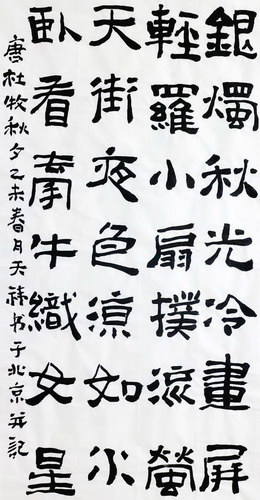 銀燭秋光冷畫屏
輕羅小扇撲流螢
天街夜色涼如水
臥看牽牛織女星
唐杜牧秋夕乙未春月天祿书于北京并記